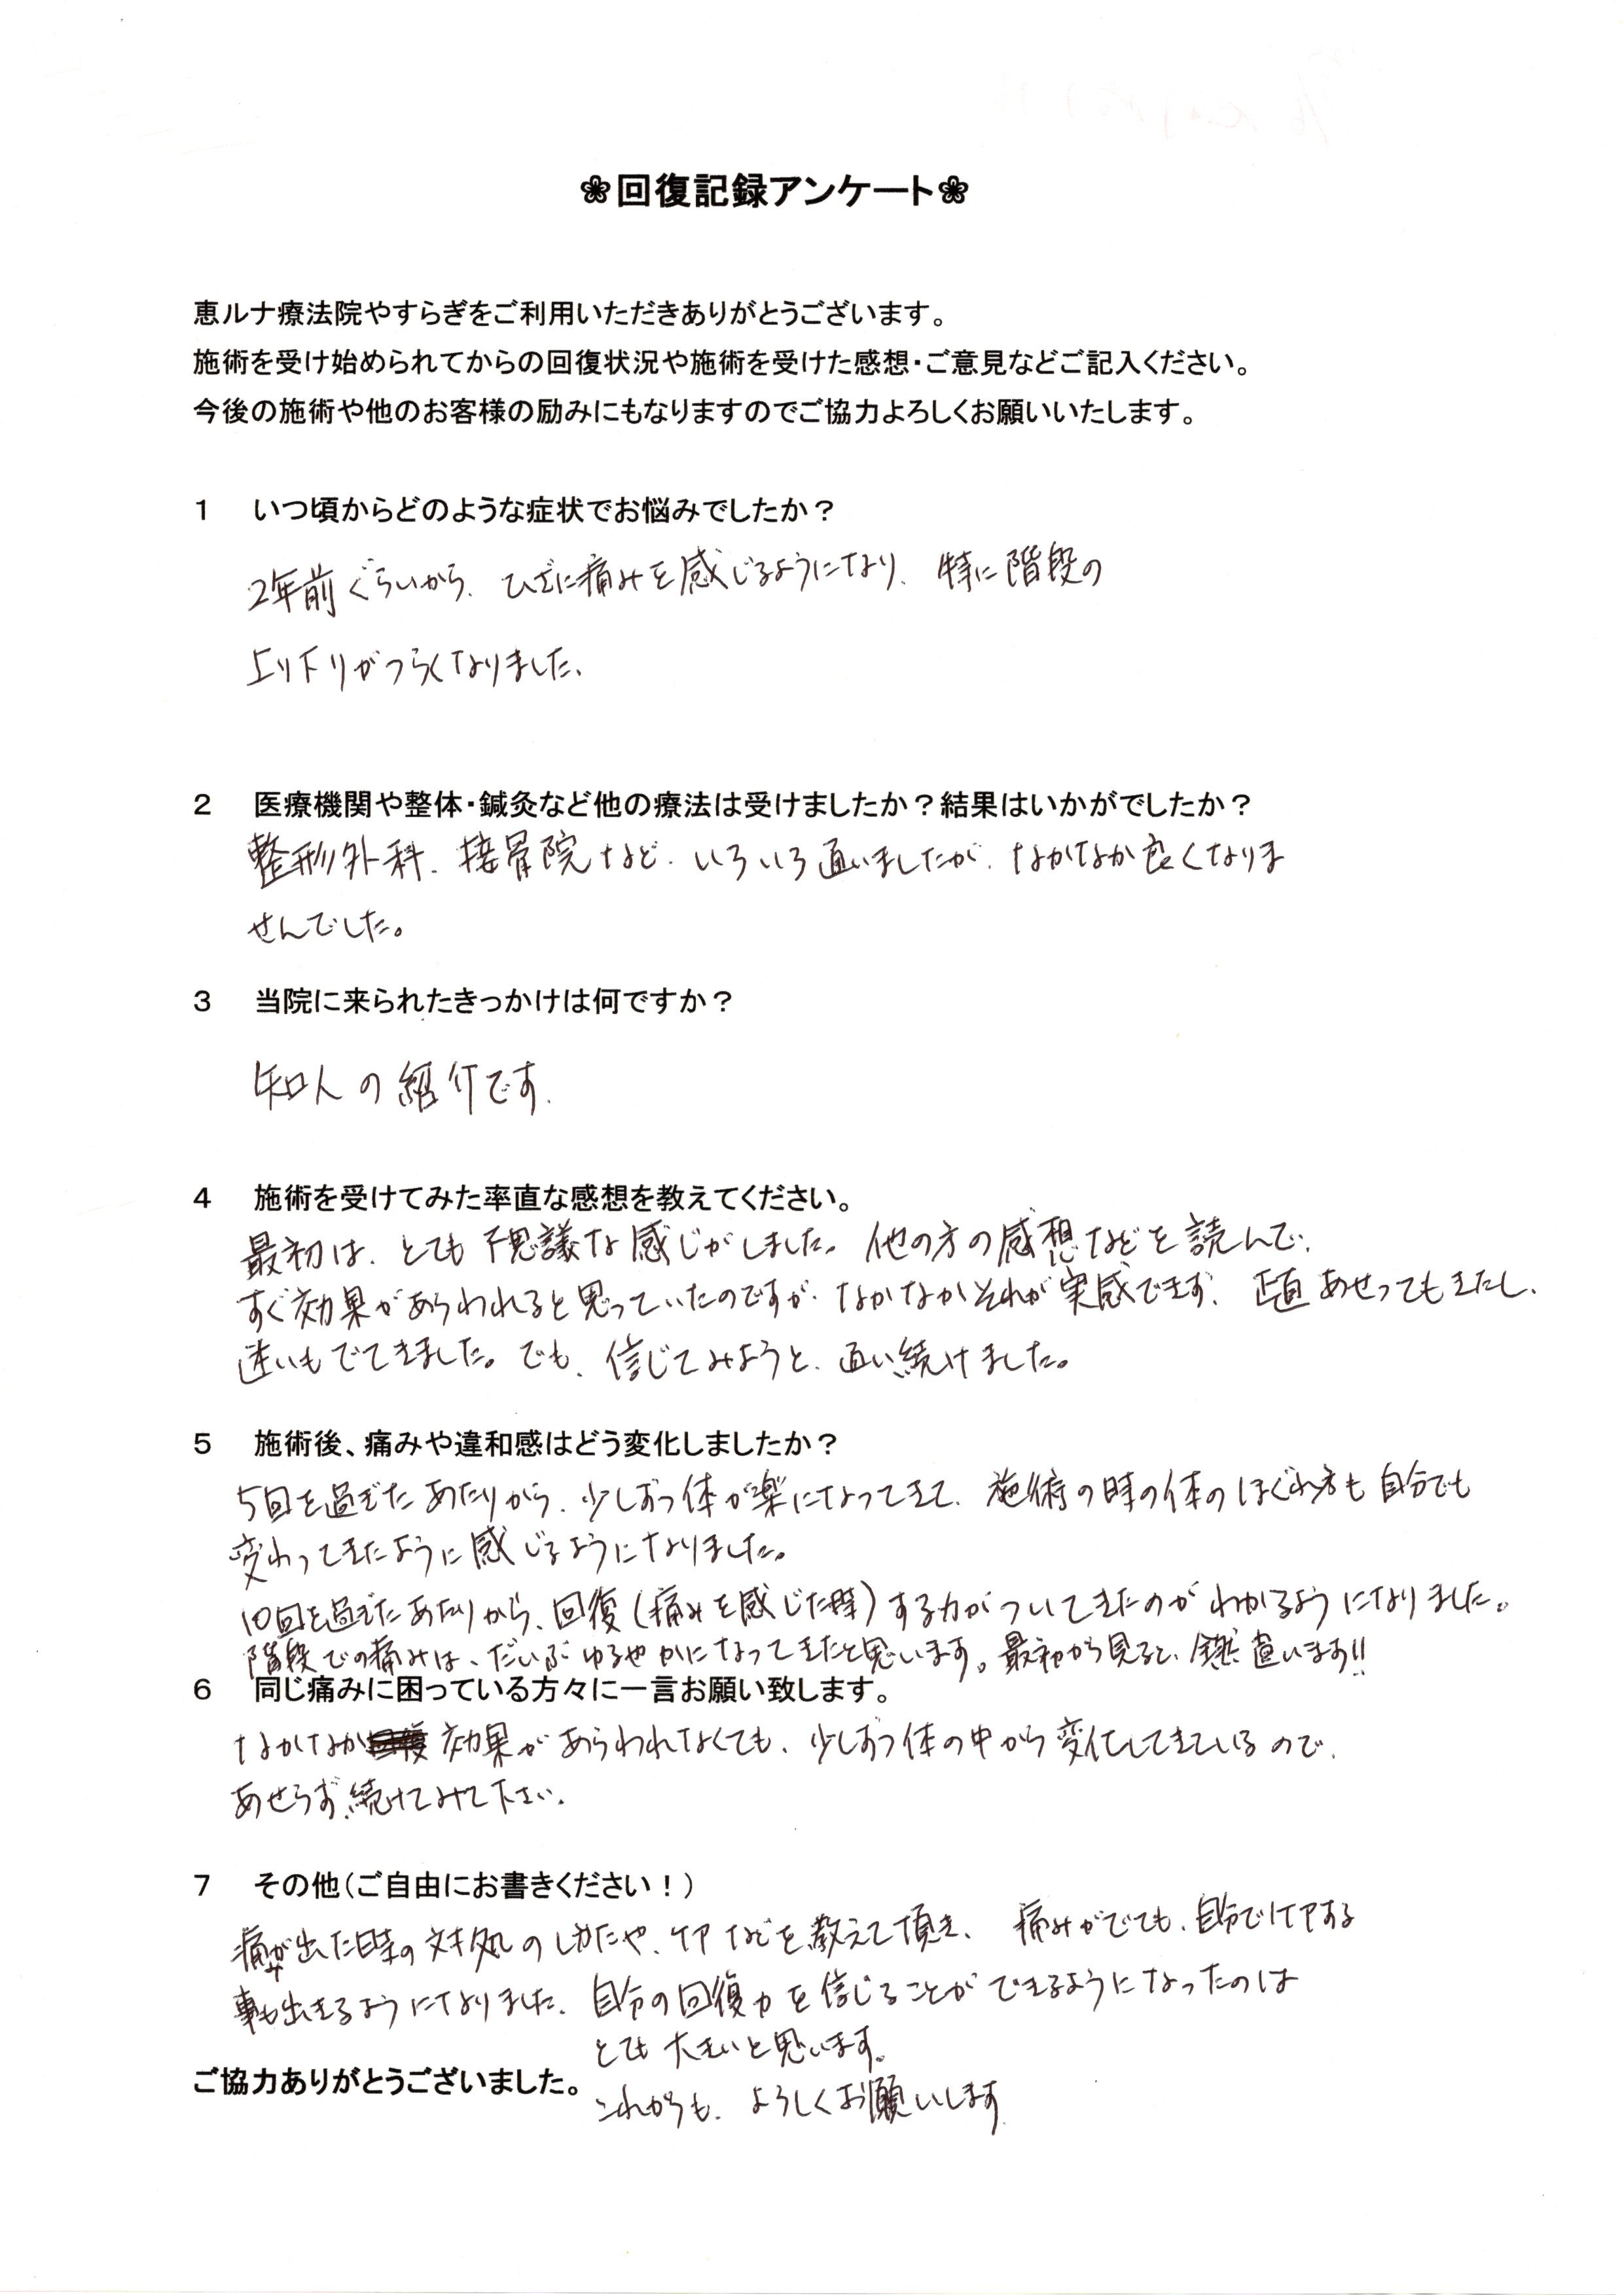 ❀回復記録アンケート❀
恵ルナ療法院やすらぎをご利用いただきありがとうございます。
施術を受け始められてからの回復状況や施術を受けた感想・ご意見などご記入ください。
今後の施術や他のお客様の励みにもなりますのでご協力よろしくお願いいたします。
1 いつ頃からどのような症状でお悩みでしたか？
2年前ぐらいから、ひざに痛みを感じるようになり、特に階段の
上り下りがつらくなりました、
2 医療機関や整体・鍼灸など他の療法は受けましたか？結果はいかがでしたか？
整形外科、接骨院など、いろいろ通いましたが、なかなか良くなりま
せんでした。
3 当院に来られたきっかけは何ですか？
知人の紹介です、
4 施術を受けてみた率直な感想を教えてください。
最初は、とても不思議な感じがしました。他の方の感想などを読んで、
すぐ効果があらわれると思っていたのですが、なかなかそれが実感できず、正直あせってもきたし、
迷いもでてきました。でも、信じてみようと、通い続けました。
5 施術後、痛みや違和感はどう変化しましたか？
5回を過ぎたあたりから、少しずつ体が楽になってきて、施術の時の体のほぐれ方も自分でも
変わってきたように感じるようになりました。
10回を過ぎたあたりから、回復(痛みを感じた時)する力がついてきたのがわかるようになりました。
階段での痛みは、だいぶゆるやかになってきたと思います。最初から見ると、全然違います!!
6 同じ痛みに困っている方々に一言お願い致します。
なかなか効果があらわれなくても、少しずつ体の中から変化してきているので、
あせらず、続けてみて下さい、
7 その他（ご自由にお書きください！）
痛みが出た時の対処のしかたや、ケアなどを教えて頂き、痛みがでても、自分でケアする
事も出きるようになりました、自分の回復力を信じることができるようになったのは
とても大きいと思います。
ご協力ありがとうございました。
これからも、よろしくお願いします、